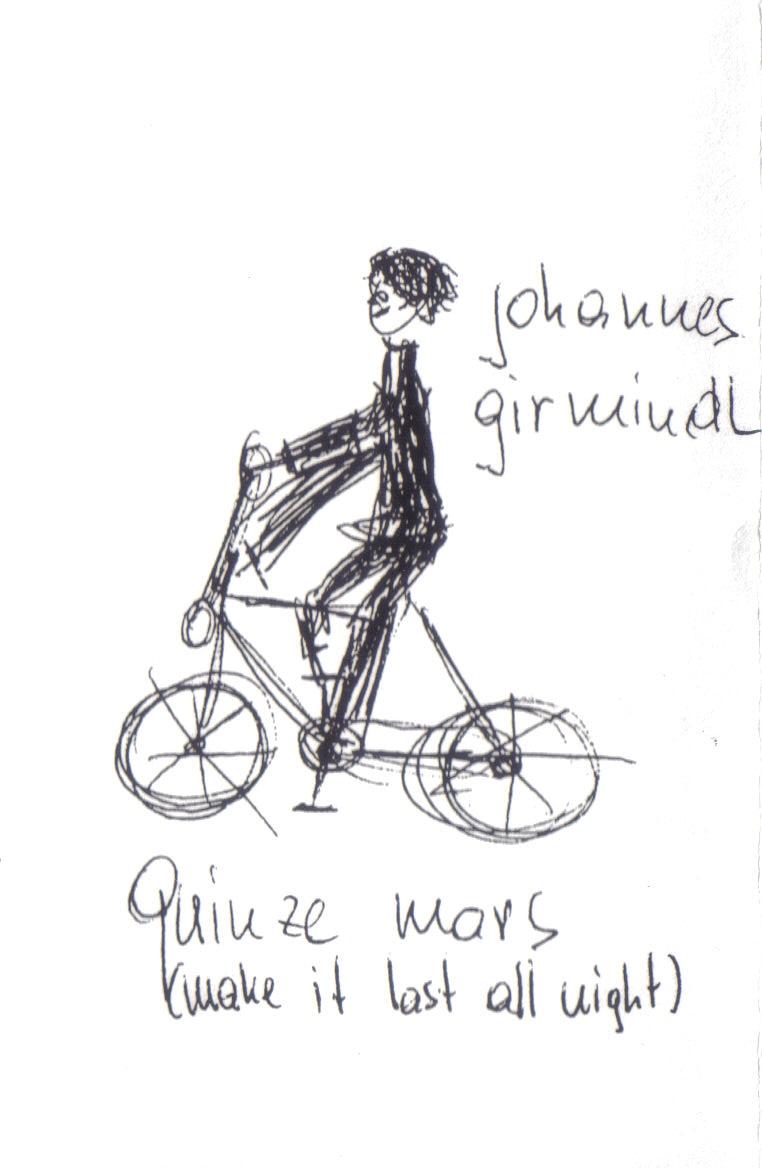 johannes
girmindl
Quinze mars
(make it last all night)